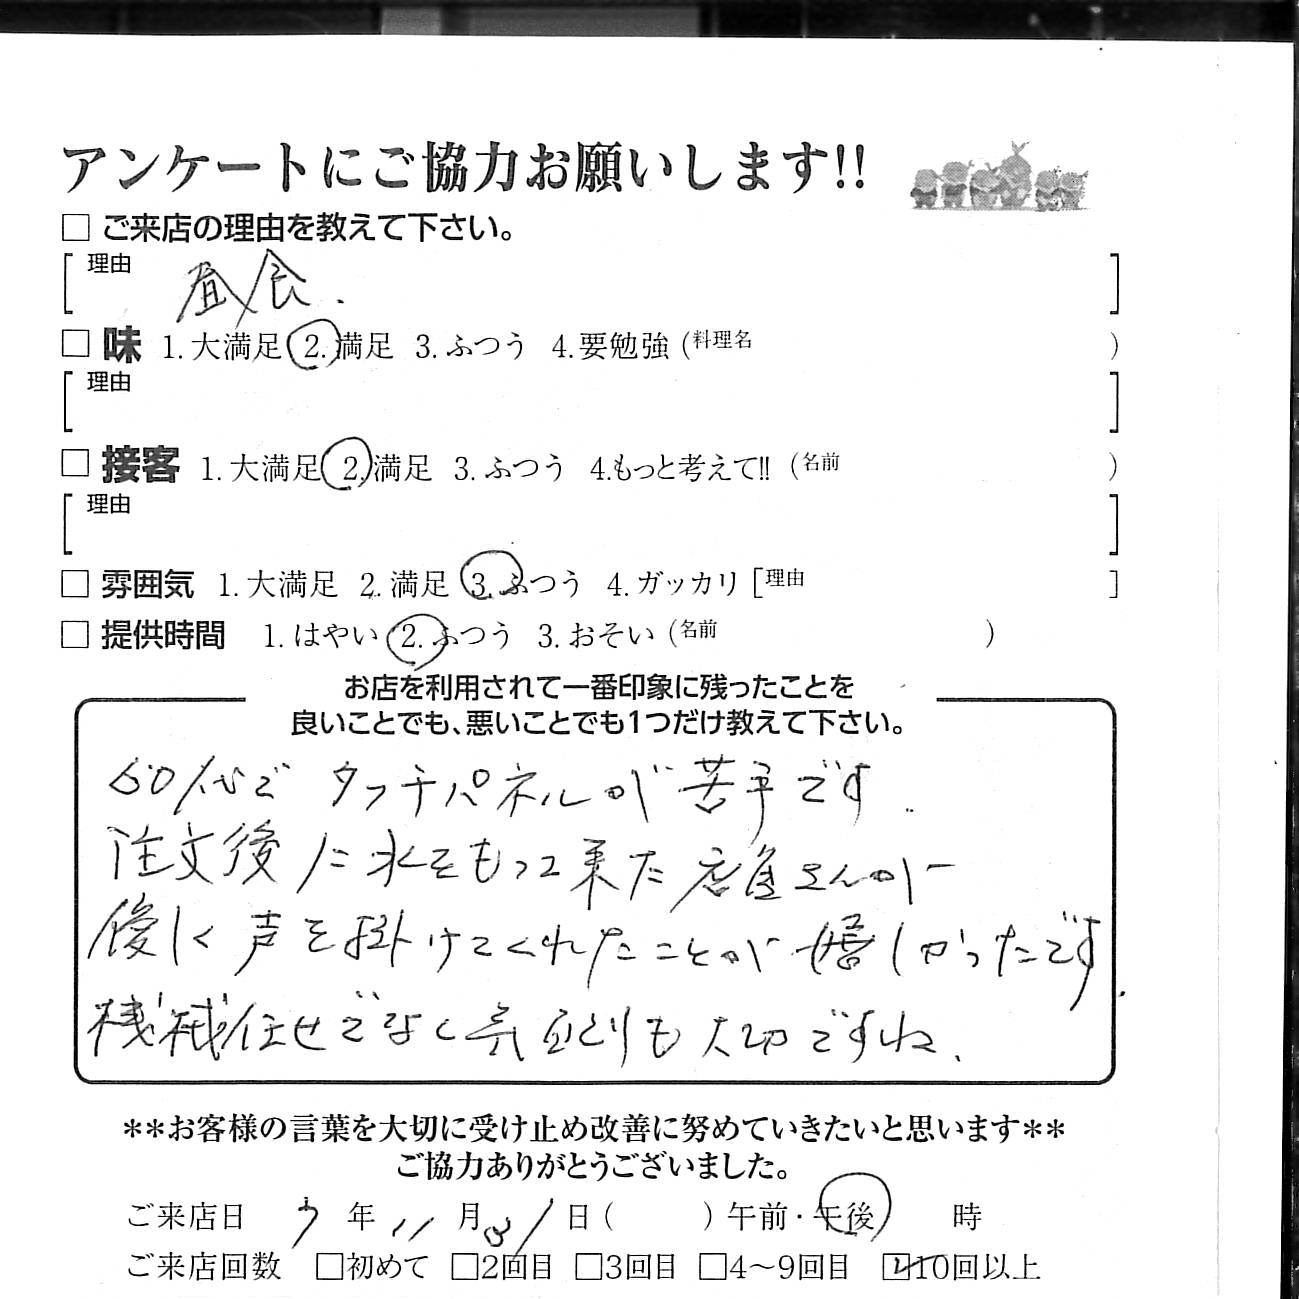 アンケートにご協力お願いします!!
□ ご来店の理由を教えて下さい。
[理由 昼食. ]
□ 味 1.大満足 2.満足 3.ふつう 4.要勉強 (料理名 )
[理由 ]
□ 接客 1.大満足 2.満足 3.ふつう 4.もっと考えて!! (名前 )
[理由 ]
□ 雰囲気 1.大満足 2.満足 3.ふつう 4.ガッカリ [理由 ]
□ 提供時間 1.はやい 2.ふつう 3.おそい (名前 )
お店を利用されて一番印象に残ったことを
良いことでも、悪いことでも1つだけ教えて下さい。
60代で タッチパネルが 苦手です.
注文後に水をもって来た店員さんが
優しく声を掛けてくれたことが嬉しかったです.
機械任せでなく気配りも大切ですね.
**お客様の言葉を大切に受け止め改善に努めていきたいと思います**
ご協力ありがとうございました。
ご来店日 7年 11月 日 ( ) 午前・午後 時
ご来店回数 □初めて □2回目 □3回目 □4〜9回目 ☑10回以上